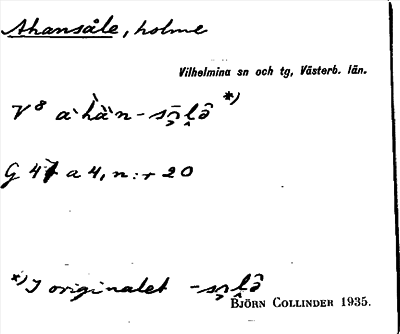 Ahansåle, holme
Vilhelmina sn och tg, Västerb. län.
V8 a
G 4 a 4, n:r 20
*) I originalet
BJÖRN COLLINDER 1935.